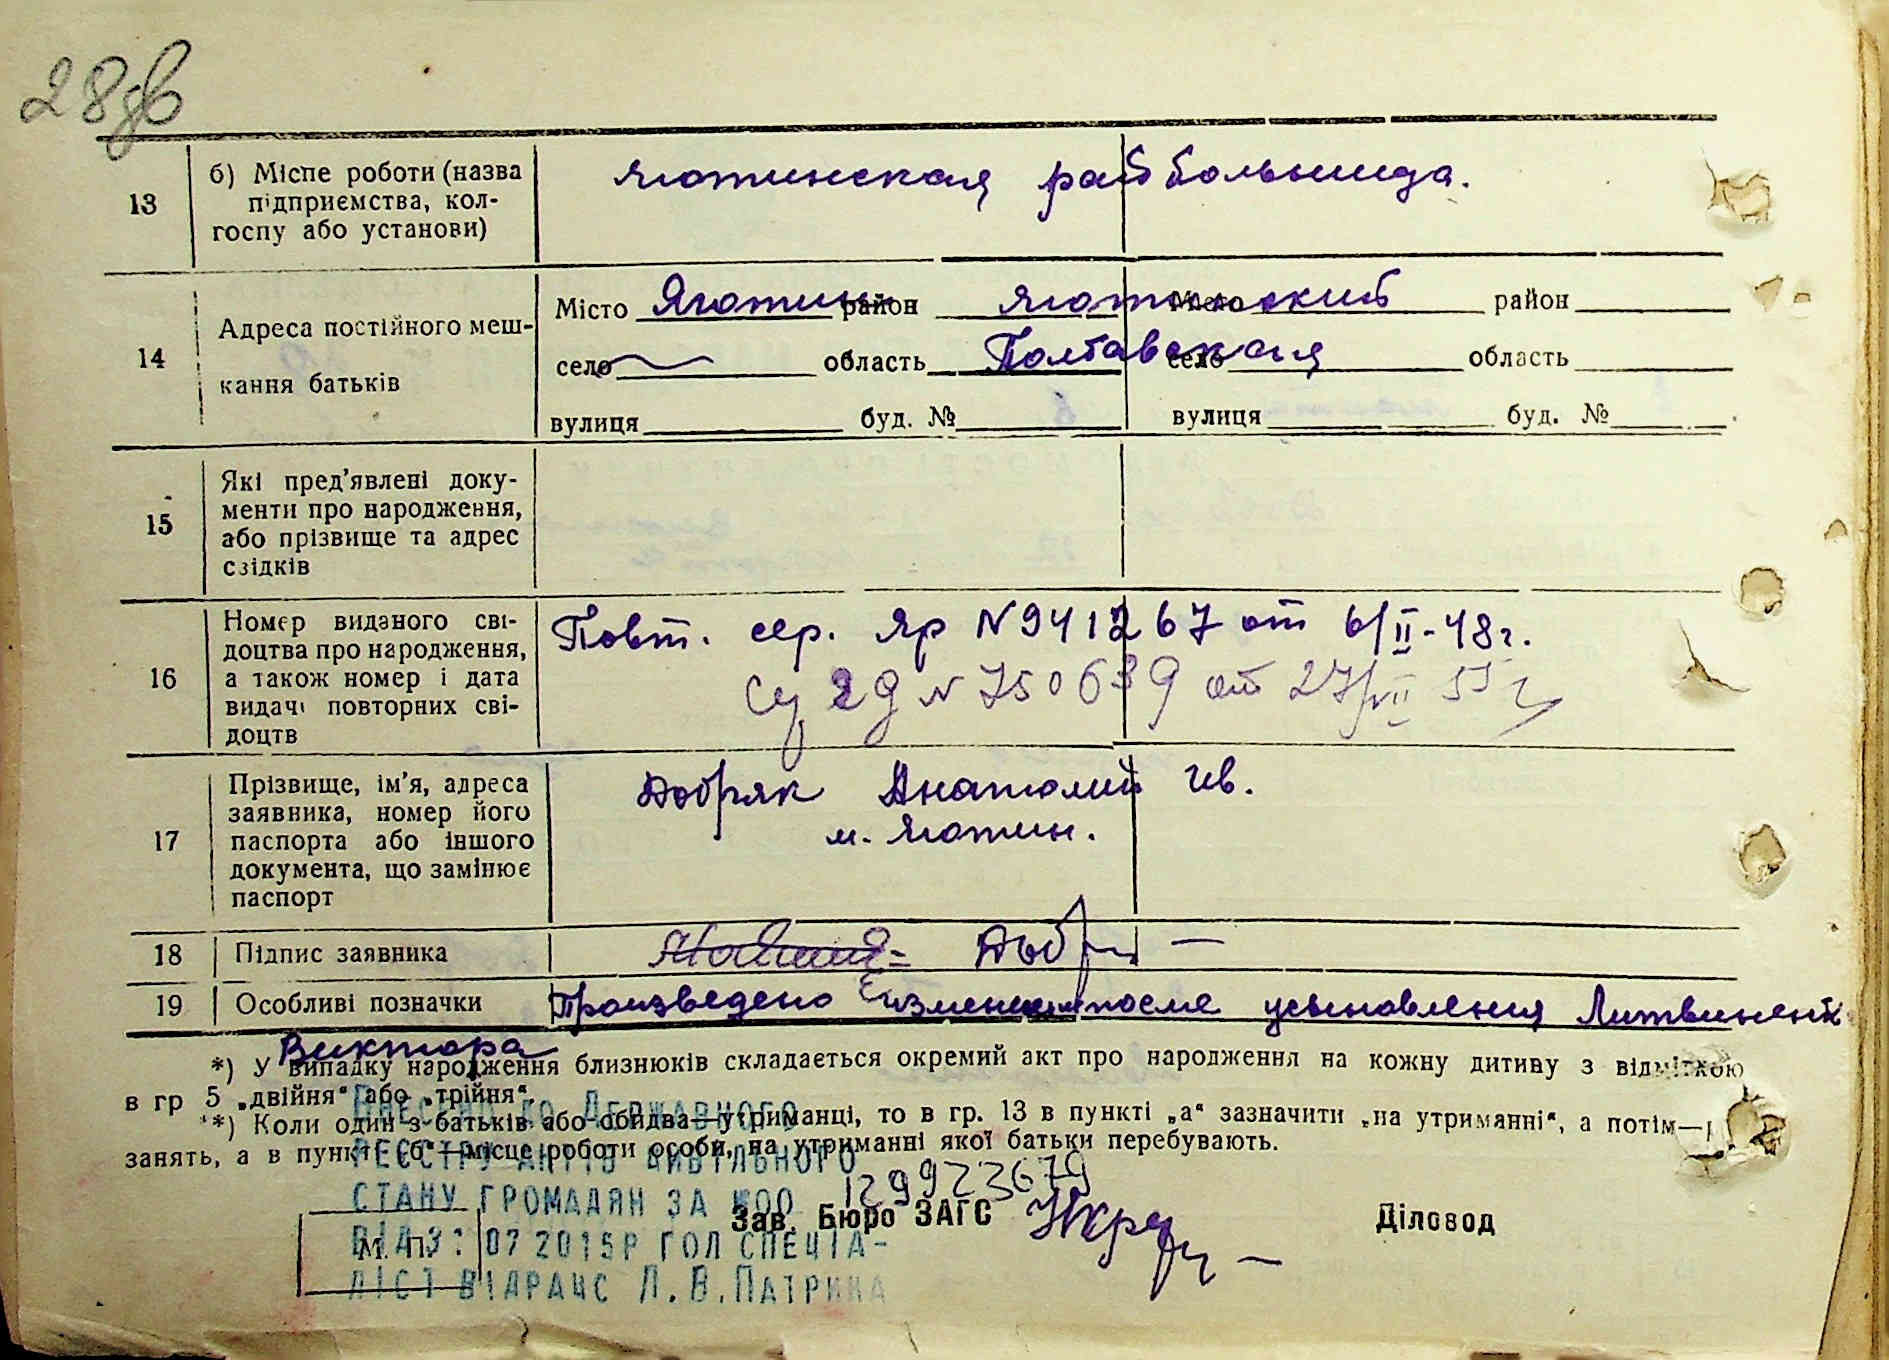 28зв
13
б) Міспе роботи (назва
підприємства, кол-
госпу або установи)
Яготинская райбольница.
14
Адреса постійного меш-
кання батьків
Місто Яготин район Яготинский Місто район
село область Полтавская село область
вулиця буд. № вулиця буд. №
15
Які пред'явлені доку-
менти про народження,
або прізвище та адрес
свідків
16
Номер виданого сві-
доцтва про народження,
а також номер і дата
видачі повторних сві-
доцтв
Повт. сер. ЯР N 941267 от 6/II-48г.
N 750639 от 27/VII 55 г
17
Прізвище, ім'я, адреса
заявника, номер його
паспорта або іншого
документа, що замінює
паспорт
Добряк Анатолий Ив.
м. Яготин.
18
Підпис заявника
Добр
19
Особливі позначки
Произведено изменения после усыновления Литвиненк
Виктора
*) У випадку народження близнюків складається окремий акт про народження на кожну дитину з відміткою
в гр 5 „двійня“ або „трійня“.
**) Коли один з батьків або обидва—утриманці, то в гр. 13 в пункті „а“ зазначити „на утриманні“, а потім—
занять, а в пункті „б“—місце роботи особи, на утриманні якої батьки перебувають.
Внесено до Державного
реєстру актів цивільного
стану громадян за №00 129923679
від 3: 07 2015р гол спеціа-
ліст відрацс Л.В.Патрика
М. П.
Зав. Бюро ЗАГС
Діловод